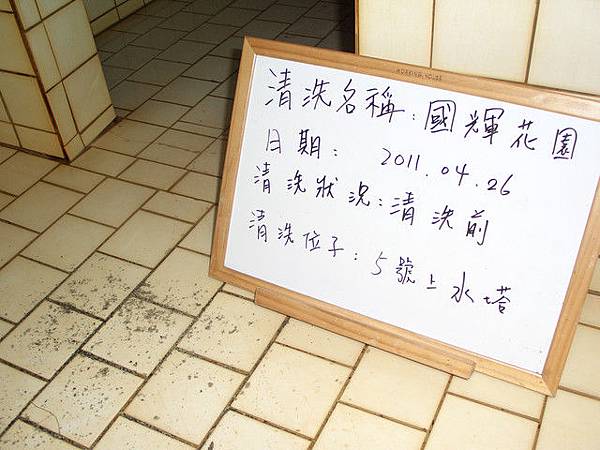 清洗名稱：國輝花園
日期： 2011.04.26
清洗狀況：清洗前
清洗位子：5號上水塔